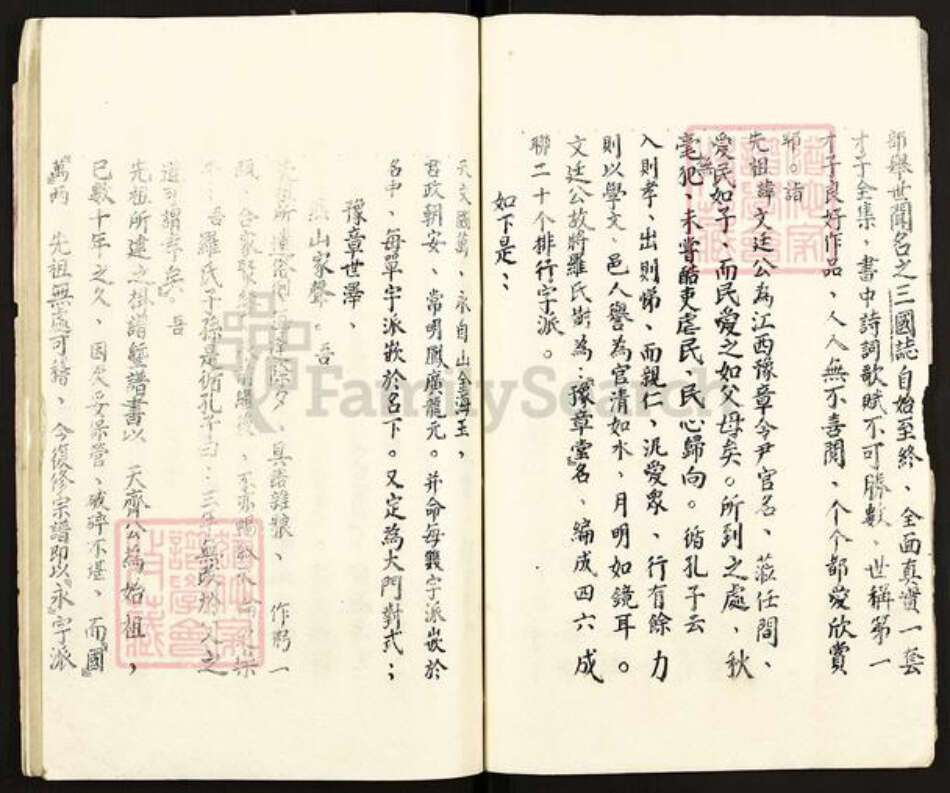 部舉世聞名之三國誌自始至終、全面真實一套
才子全集、書中詩詞歌賦不可勝數、世稱第一
才子良好作品、人人無不喜閱、个个都愛欣賞
耶。諸
先祖諱文廷公為江西豫章令尹官名、蒞任間、
愛民如子、而民愛之如父母矣。所到之處、秋
毫無犯、未嘗酷吏虐民、民心歸向。循孔子云
入則孝、出則悌、而親仁、汎愛眾、行有餘力
則以學文、邑人譽為官清如水、月明如鏡耳。
文廷公故將羅氏衍為：『豫章堂』名、編成四六成
聯二十个排行字派。
如下是：
天文國萬、永自山金海玉，
君政朝安、常明鳳廣龍元。并命每雙字派嵌於
名中、每單字派嵌於名下。又定為大門對式；
豫章世澤、
山家聲。吾
先祖所
羅氏子孫是循孔子曰：三年無改於父之
道可謂孝矣。吾
先祖所建之祺譜經譜書以 天齊公為始祖，
已數十年之久、因失妥保管、破碎不堪、而『國』
『萬』兩 先祖無處可稽、今復修宗譜即以『永』字派
FamilySearch